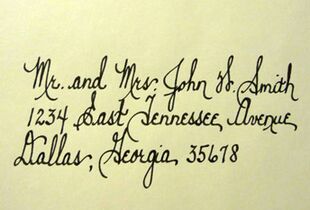 Mr. and Mrs. John W. Smith
1234 East Tennessee Avenue
Dallas, Georgia 35678